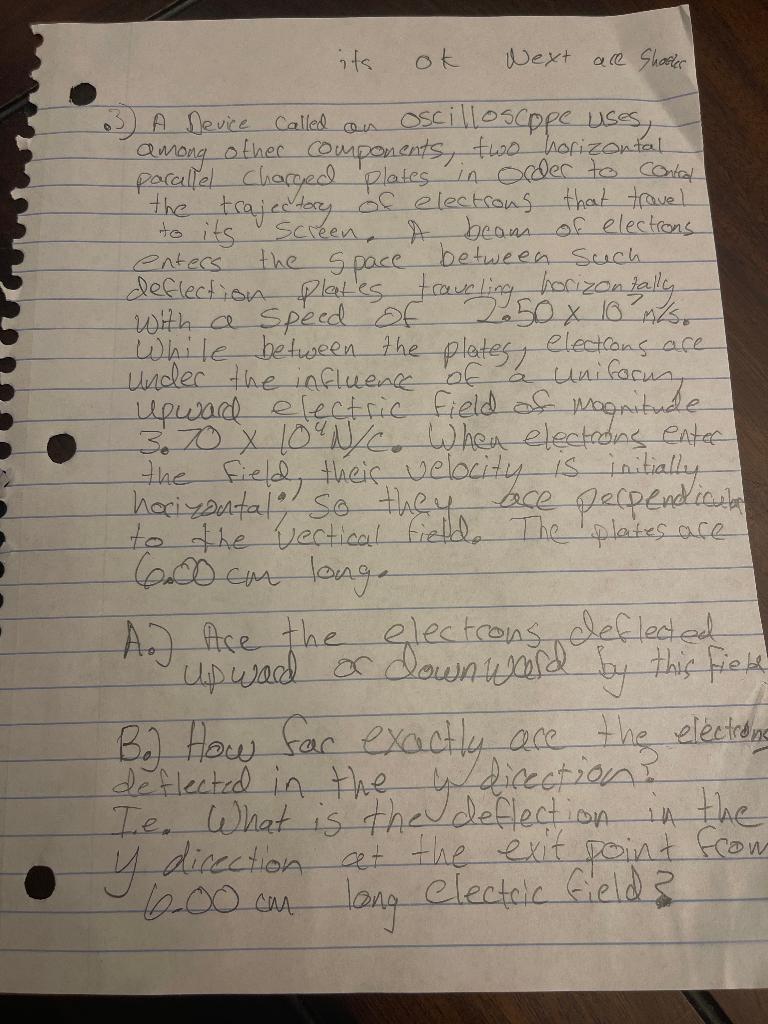 its ok Next are Shorter
.3) A Device called an oscilloscope uses,
among other components, two horizontal
parallel charged plates in order to control
the trajectory of electrons that travel
to its screen. A beam of electrons
enters the space between such
deflection plates traveling horizontally
with a speed of 2.50 x 10⁷ m/s.
While between the plates, electrons are
under the influence of a uniform,
upward electric field of magnitude
3.70 x 10⁴ N/C. When electrons enter
the field, their velocity is initially
horizontal; so they are perpendicular
to the vertical field. The plates are
6.00 cm long.
A.) Are the electrons deflected
upward or downward by this field
B.) How far exactly are the electrons
deflected in the y direction?
I.e. What is the deflection in the
y direction at the exit point from
6.00 cm long electric field?